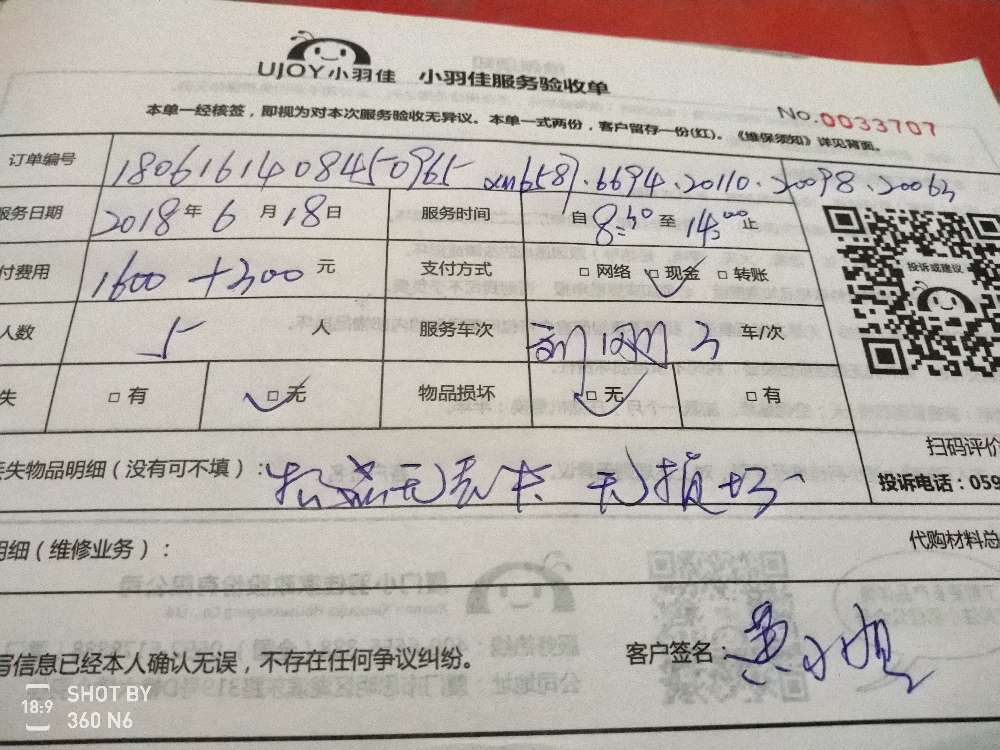 UJOY小羽佳 小羽佳服务验收单
No.0033707
本单一经核签，即视为对本次服务验收无异议。本单一式两份，客户留存一份(红)。《维保须知》详见背面。
订单编号 1806161408450965 xm6587.6694.20110.20098.20063
服务日期 2018年6月18日 服务时间 自8:30至14:00止
付费用 1600+300元 支付方式 □网络 □现金 □转账
人数 5人 服务车次 3车/次
失 □有 □无 物品损坏 □无 □有
投诉或建议
扫码评价
丢失物品明细（没有可不填）： 无丢失 无损坏
投诉电话：059
明细（维修业务）：
代购材料总
写信息已经本人确认无误，不存在任何争议纠纷。
客户签名：黄小姐
18:9 SHOT BY
360 N6